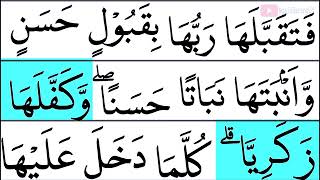 فَتَقَبَّلَهَا رَبُّهَا بِقَبُوْلٍ حَسَنٍ
وَّاَنْۢبَتَهَا نَبَاتًا حَسَنًا ۖ وَّكَفَّلَهَا
زَكَرِيَّا ۗ كُلَّمَا دَخَلَ عَلَيْهَا